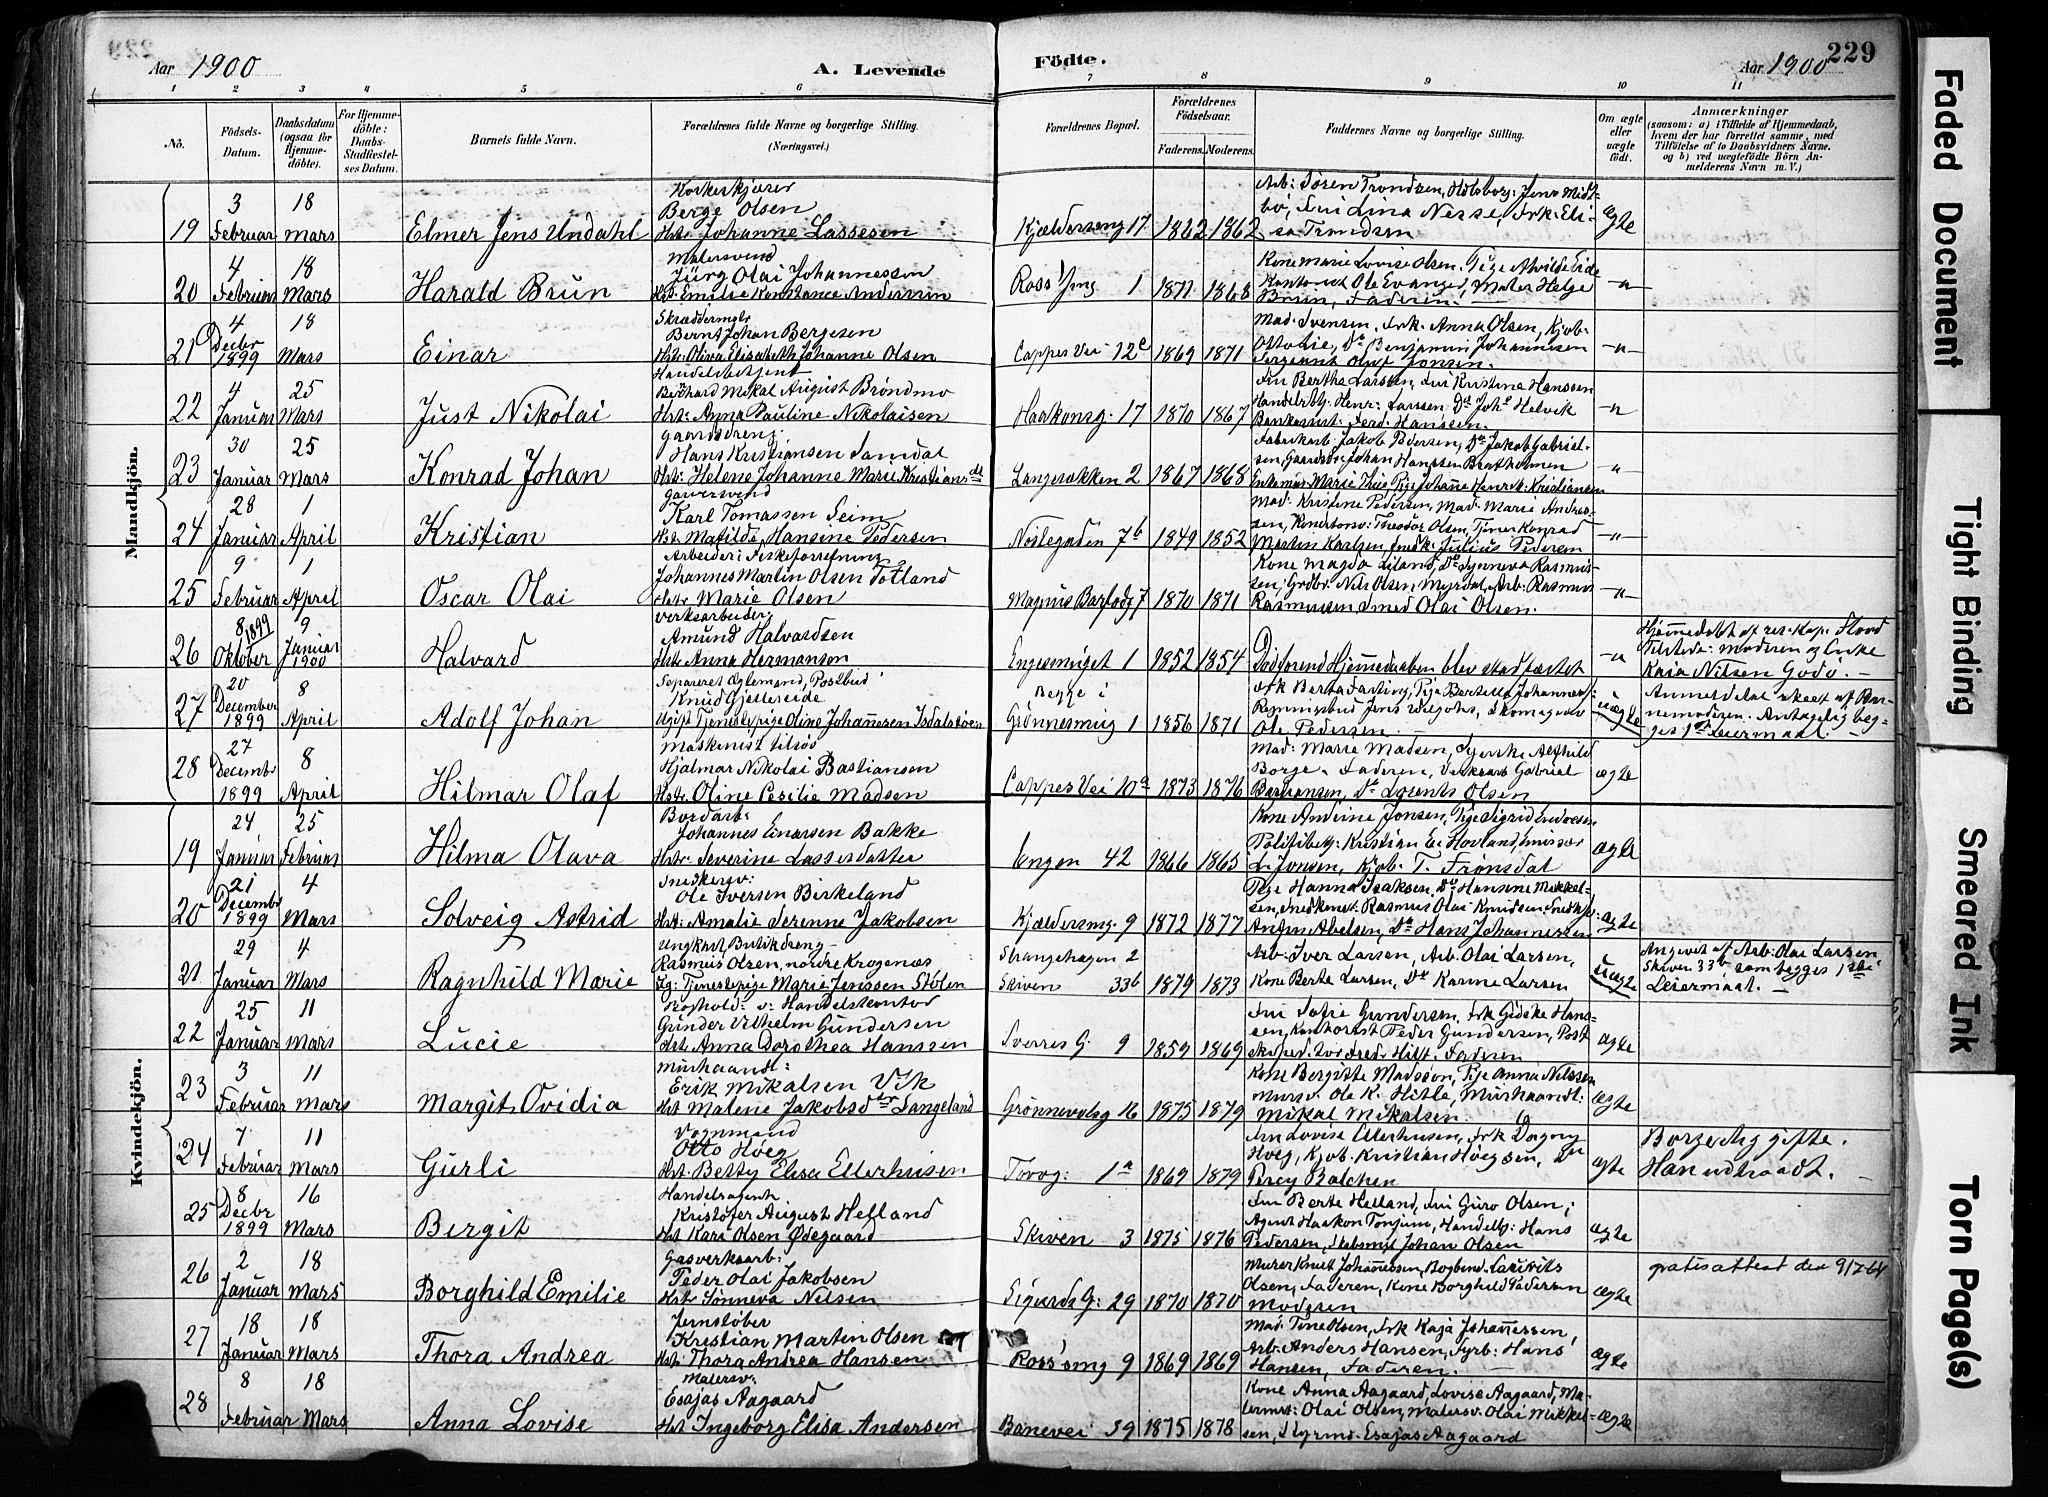 229
Aar 1900
A. Levende
Födte.
Aar 1900
1 2 3 4 5 6 7 8 9 10 11
No.
Födsels-
Datum.
Daabsdatum
(ogsaa for
Hjemme-
döbte).
For Hjemme-
döbte:
Daabs-
Stadfæstel-
ses Datum.
Barnets fulde Navn.
Forældrenes fulde Navne og borgerlige Stilling.
(Næringsvei.)
Forældrenes Bopæl.
Forældrenes
Födselsaar.
Faderens. Moderens.
Faddernes Navne og borgerlige Stilling.
Om ægte
eller
uægte
födt.
Anmærkninger
(saasom: a) i Tilfælde af Hjemmedaab,
hvem der har forrettet samme, med
Tilföielse af to Daabsvidners Navne.
og b) ved uægtefödte Börn An-
melderens Navn m. V.)
Mandkjön.
19 3 Februar 18 Mars Elmer Jens Undahl
Berge Olsen
Hst. Johanne Lassesen
Kjældersmug 17 1862 1862
Arb: Sören Trondsen, Jens Midt-
bö, Fru Lina Nesse, Frk. Eli-
sa Trondsen
ægte
20 4 Februar 18 Mars Harald Brun
Malersvend
Jörg Olai Johannesson
Hst: Emilie Konstance Andersen
Ross'smg 1 1871 1868
Kone Marie Lovise Olsen. Pige Alvilde Eide
Kontorist Ole Evanged, Maler Helge
Brun, Faderen. —
-"-
21 4 Decbr 1899 18 Mars Einar
Skræddermstr
Bernt Johan Bergesen
Hst: Oliva Elisabeth Johanne Olsen
Cappes Vei 12c 1869 1871
Mad. Svensen, Frk. Anna Olsen, Kjöb.
Otto Lie, Do Benjamin Johannesen
Sergeant Oluf Jonsen.
-"-
22 4 Januar 25 Mars Just Nikolai
Handelsbetjent
Berhard Mikal August Bröndmo
Hst: Anna Pauline Nikolaisen
Haakonsg. 17 1870 1867
Fru Bertha Larsen, Fru Kristine Hanssen
Handelsb. Henr: Larssen. Do Johs Helvik
Ferd: Hanssen.
-"-
23 30 Januar 25 Mars Konrad Johan
Gaardsdreng:
Hans Kristiansen Samdal
Hst: Helene Johanne Marie Kristiansdt
Langesækken 2 1867 1868
Fabrikarb: Jakob Pedersen, Do Jakob Gabriel-
sen, Gaardsdr. Johan Hanssen Bratholmen
Enkemad. Marie Thue Pige Johanne Henrik: Kristiansen
-"-
24 28 Januar 1 April Kristian
Garversvend
Karl Tomassen Seim
Hst: Matilde Hansine Pedersen
Nöstegaden 7b 1849 1852
Mad: Kristine Pedersen, Mad. Marie Andres-
sen, Konditorsv: Theodor Olsen, Tjener Konrad
Martin Karlsen, Snedk: Julius Pedersen
-"-
25 9 Februar 1 April Oscar Olai
Arbeider: Fiskeforretning
Johannes Martin Olsen Totland
Hst: Marie Olsen
Magnus Barfodg. 7 1870 1871
Kone Magda Liland, Do Synneva Rasmus-
sen; Grdbr. Nils Olsen, Myrdal, Arb. Rasmus
Rasmussen Smed Olai Olsen.
-"-
26 8 Oktober 1899 9 Januar 1900 Halvard
Verksarbeider
Amund Halvardsen
Hst: Anna Hermanson
Engesmuget 1 1852 1854
Död forend Hjemmedaaben blev stadfæstet
-"-
Hjemmedöbt af res. Kap. Flood
Tilstede: moderen og Enke
Kaja Nilsen Godö. —
27 20 December 1899 8 April Adolf Johan
Separeret Postbud
Knud Gjellereide
Ugift Tjenestepige Oline Johannesen Isdalstöen
Begge i
Grönnesmug 1 1856 1871
Frk Berta Fasting, Pige Bertille Johannes.
Regningsbud Jens Skomager
Ole Pedersen
uægte
Anmeldelse skeet af Bar-
nemoderen. Antagelig beg-
ges 1ste Leiermaal. —
28 27 Decembr 1899 8 April Hilmar Olaf
Maskinist tilsös
Hjalmar Nikolai Bastiansen
Hst: Oline Cesilie Madsen
Cappes Vei 10a 1873 1876
Mad: Marie Madsen, Alfhild
Borge. Faderen, Verksarb Gabriel
Bastiansen, Do Lorents Olsen
ægte
Kvindekjön.
19 24 Januar 25 Februar Hilma Olava
Bordarb:
Johannes Einarsen Bakke
Hst: Severine Lassesdatter
Engen 42 1866 1865
Kone Andrine Jonsen, Pige Sigrid
Politibetj: Kristian E. Hovland, Emissær
L. Jonsen, Kjöb. T. Frönsdal
ægte
20 21 Decembr 1899 4 Mars Solveig Astrid
Snedkersv:
Ole Iversen Birkeland
Hst: Amalie Serenne Jakobsen
Kjældersmg. 9 1872 1877
Pige Hanna Isaksen, Do Hansine Mikkel-
sen, Snedkersv. Rasmus Olai Knudsen, Snedker
Anton Abelsen, Do Hans Johannessen
ægte
21 29 Januar 4 Mars Ragnhild Marie
Ungkarl, Butikdreng
Rasmus Olsen, nordre Krogenæs
Ug: Tjenestepige Marie Jenssen Stölen
Strangehagen 2
Skiven 33b 1879 1873
Arb: Iver Larsen, Arb: Olai Larsen,
Kone Berte Larsen, Do Karine Larsen
uægte
Angivet af Arb: Olai Larsen
Skiven 33b som begges 1ste
Leiermaal. —
22 25 Januar 11 Mars Lucie
Boghold: v: Handelskontor
Gunder Vilhelm Gundersen
Hst: Anna Dorothea Hanssen
Sverres G. 9 1859 1869
Fru Sofie Gundersen, Frk Gidske Hans-
sen, Kontorist Peder Gundersen, Post
ekspeditör Fred: Hilt. Faderen
ægte
23 3 Februar 11 Mars Margit Ovidia
Murhaandl:
Erik Mikalsen Vik
Hst Malene Jakobsdtr Langeland
Grönnevolsg 16 1875 1879
Kone Bergitte Madssen, Pige Anna Nilssen
Mursv. Ole K. Hitle, Murhaandl:
Mikal Mikalsen.
ægte
24 7 Februar 11 Mars Gurli
Vognmand
Otto Höeg
Hst: Betty Elisa Ellerhusen
Torvg: 1a 1869 1879
Fru Lovise Ellerhusen, Frk Dagny
Höeg, Kjöb. Kristian Höegsen, Do
Percy Balchen
ægte
Borgerlig gifte.
Han udtraadt. —
25 8 Decbr 1899 16 Mars Bergit
Handelsagent
Kristofer August Helland
Hst Kari Olsen Ödegaard
Skiven 3 1875 1876
Fru Berte Helland, Fru Guro Olsen;
Agent Haakon Tonjum, Handelsf: Hans
Pedersen, Johan Olsen
ægte
26 2 Januar 18 Mars Borghild Emilie
Gasverksarb:
Peder Olai Jakobsen
Hst: Sönneva Nilsen
Sigurds G: 29 1870 1870
Murer Knut Johannessen, Bogbind. Laurits
Olsen, Faderen, Kone Borghild Pedersen
Moderen
ægte
gratisattest den 9/7-64
27 18 Januar 18 Mars Thora Andrea
Jernstöber
Kristian Martin Olsen
Hst: Thora Andrea Hansen
Ross'smg 9 1869 1869
Mad: Tine Olsen, Frk Kaja Johannessen,
Arb: Anders Hansen, Fyrb: Hans
Hansen, Faderen. —
ægte
28 8 Februar 18 Mars Anna Lovise
Malersv:
Esajas Aagaard
Hst Ingeborg Elisa Andersen
Banevei 39 1875 1878
Kone Anna Aagaard, Lovise Aagaard, Ma-
lermst: Olai Olsen, Malersv: Olai Mikkel-
sen, Styrmd. Esajas Aagaard
ægte
Faded Document
Tight Binding
Smeared Ink
Torn Page(s)